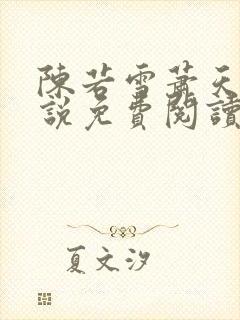 陳若雪蕭天
說免費閱讀
夏文汐